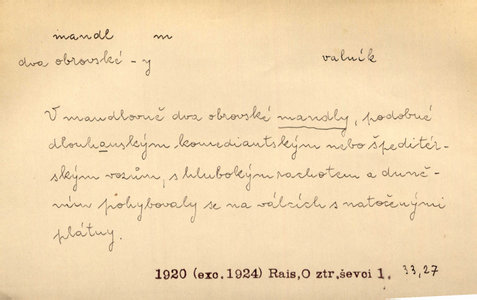 mandl m
dva obrovské - y valník
V mandlovně dva obrovské mandly, podobné
dlouhanským komediantským nebo špeditér-
ským vozům, s hlubokým rachotem a duně-
ním pohybovaly se na válcích s natočenými
plátny.
1920 (exc. 1924) Rais, O ztr. ševci 1. 33,27